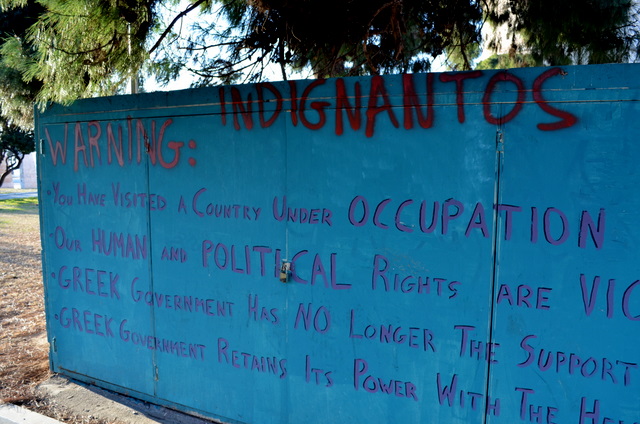 INDIGNANTOS
WARNING:
• YOU HAVE VISITED A COUNTRY UNDER OCCUPATION
• OUR HUMAN AND POLITICAL RIGHTS ARE VIO
• GREEK GOVERNMENT HAS NO LONGER THE SUPPORT
• GREEK GOVERNMENT RETAINS ITS POWER WITH THE HE